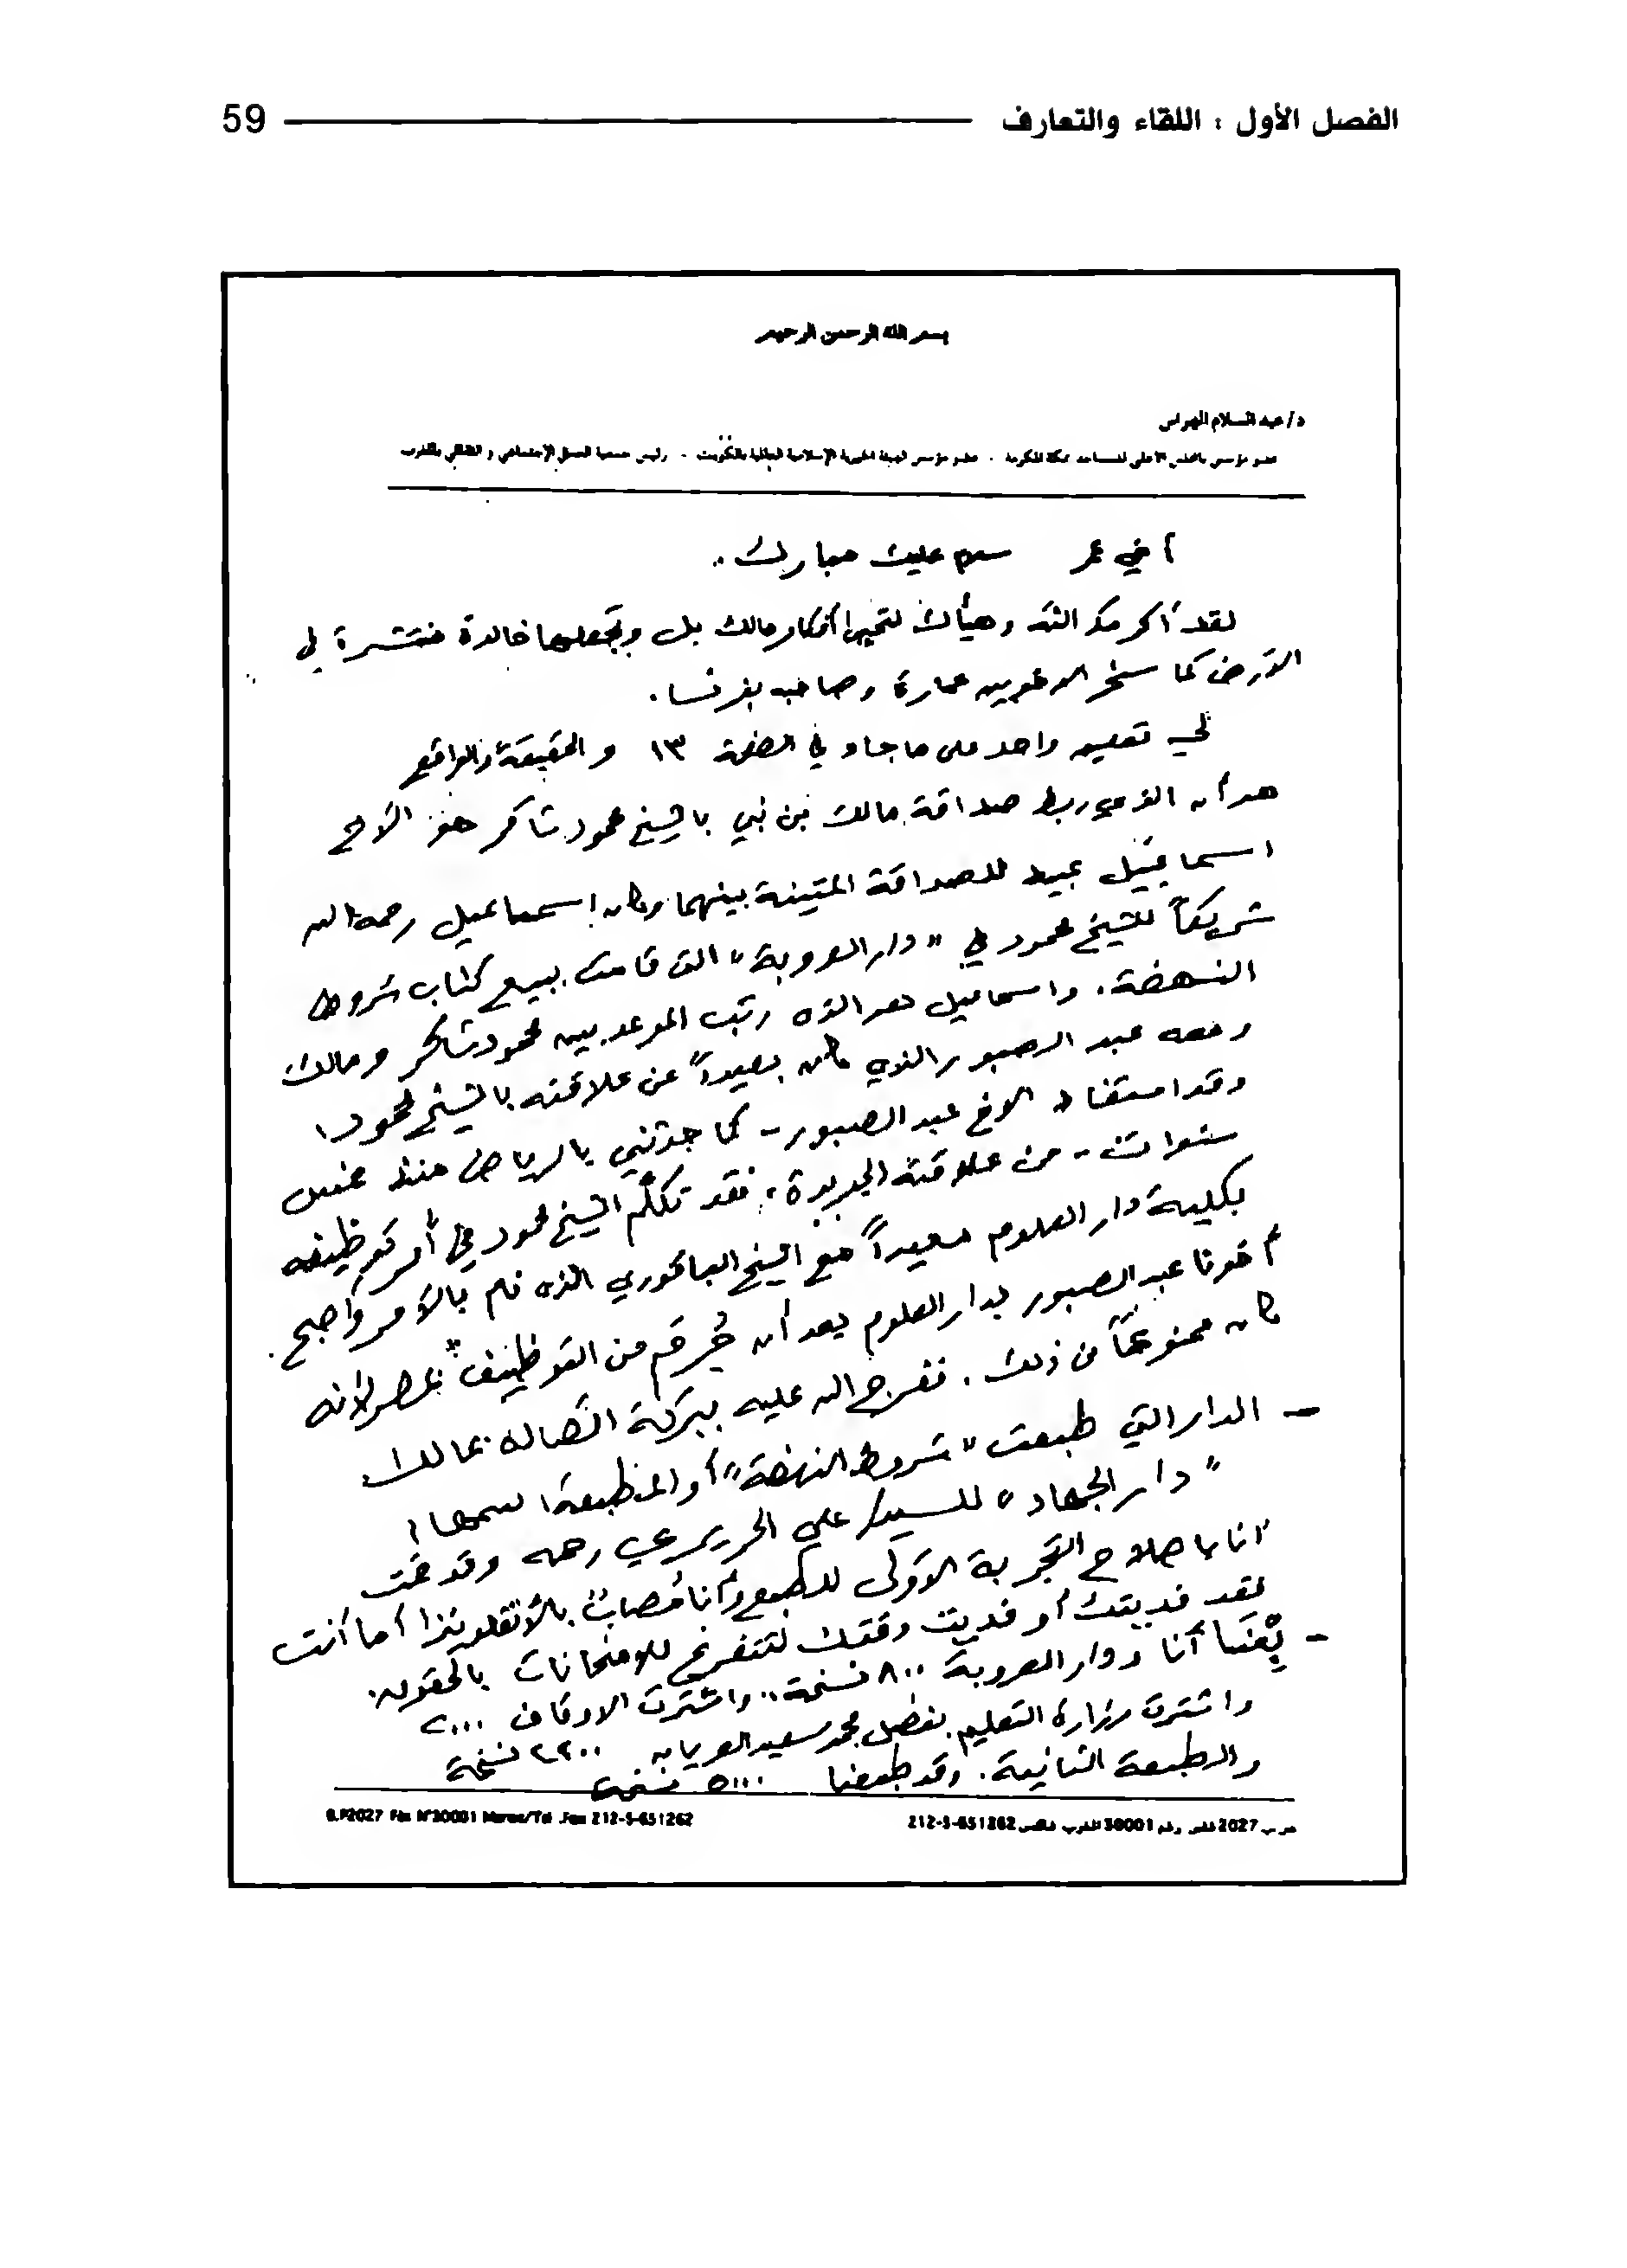 الفصل الأول : اللقاء والتعارف 59
بسم الله الرحمن الرحيم
د/عبد السلام الهراس
عضو مؤسس بالمجلس الأعلى للمساجد بمكة المكرمة - عضو مؤسس الهيئة الخيرية الإسلامية العالمية بالكويت - رئيس جمعية العمل الإجتماعي و الثقافي بالمغرب
أخي عمر سلام عليك مبارك..
لقد أكرمك الله وهيأك لتحيي أفكار مالك بل وتجعلها خالدة منتشرة في
الأرض كما سخر الدخوين عمارة وصاحبه بفرنسا.
لي تعليق واحد على ما جاء في الصفحة ١٣ والحقيقة والواقع
هو أن الذي ربط صداقة مالك بن نبي بالشيخ محمود شاكر هو الأخ
اسماعيل عبيد للصداقة المتينة بينهما وكان إسماعيل رحمه الله
شريكاً للشيخ محمود في "دار العروبة" التي قامت ببيع كتاب شروط
النهضة. واسماعيل هو الذي رتب الموعد بين محمود شاكر ومالك
ومعه عبد الصبور الذي كان بعيداً عن علاقته بالشيخ محمود
وقد استفاد الأخ عبد الصبور - كما حدثني بالرياض منذ خمس
سنوات - من علاقته الجديدة، فقد تكلم الشيخ محمود في أمر توظيفه
بكلية دار العلوم معيداً مع الشيخ الباقوري الذي قام بالأمر وأصبح
أخونا عبد الصبور بدار العلوم بعد أن حُرم من التوظيف بمصر لأنه
كان ممنوعاً من ذلك. ففرج الله عليه ببركة اتصاله بمالك
- الدار التي طبعت "شروط النهضة" أو المطبعة اسمها
"دار الجهاد" للسيد/ علي الخربوطلي رحمه وقد تمت
لقد فديتك أو فديت وقتك لتتفرغ للامتحانات بالحقوق
- بِعْنا أنا ودار العروبة ٨٠٠ نسخة،، واشترت الأوقاف ٢٠٠٠
واشترت وزارة التعليم بفضل محمد سعيد العريان ٢٢٠٠ نسخة
والطبعة الثانية. وقد طبعنا ٥٠٠٠ نسخة
B.P2027 Fès N°30001 Maroc/Tél .Fax 212-5-651262
ص.ب 2027 فاس رقم 30001 المغرب فاكس 212-5-651262